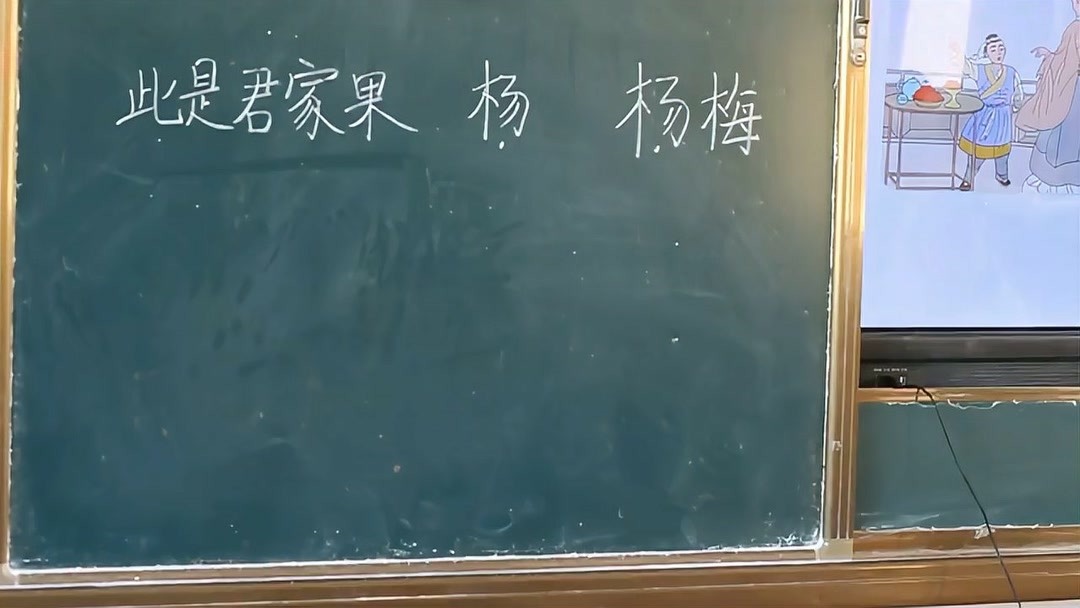 此是君家果 杨 杨梅